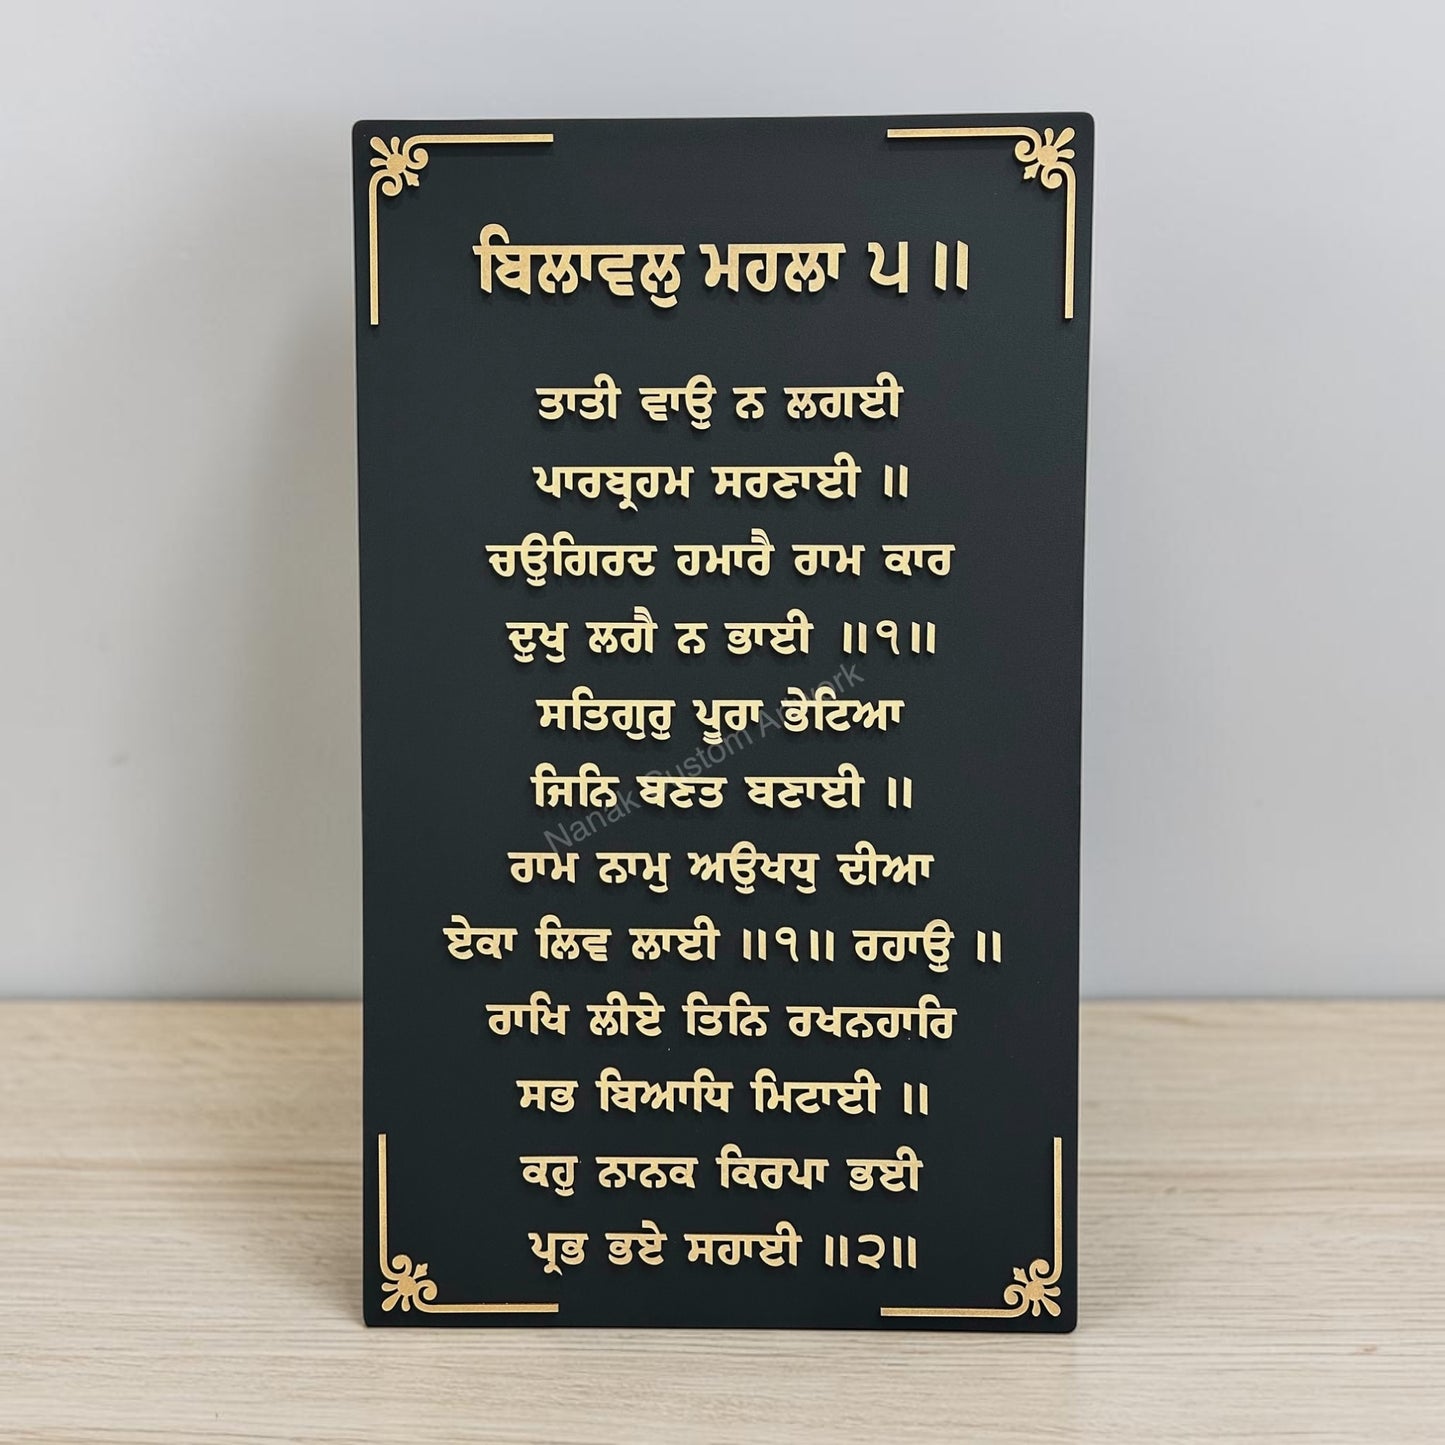 ਬਿਲਾਵਲੁ ਮਹਲਾ ੫ ॥
ਤਾਤੀ ਵਾਉ ਨ ਲਗਈ
ਪਾਰਬ੍ਰਹਮ ਸਰਣਾਈ ॥
ਚਉਗਿਰਦ ਹਮਾਰੈ ਰਾਮ ਕਾਰ
ਦੁਖੁ ਲਗੈ ਨ ਭਾਈ ॥੧॥
ਸਤਿਗੁਰੁ ਪੂਰਾ ਭੇਟਿਆ
ਜਿਨਿ ਬਣਤ ਬਣਾਈ ॥
ਰਾਮ ਨਾਮੁ ਅਉਖਧੁ ਦੀਆ
ਏਕਾ ਲਿਵ ਲਾਈ ॥੧॥ ਰਹਾਉ ॥
ਰਾਖਿ ਲੀਏ ਤਿਨਿ ਰਖਨਹਾਰਿ
ਸਭ ਬਿਆਧਿ ਮਿਟਾਈ ॥
ਕਹੁ ਨਾਨਕ ਕਿਰਪਾ ਭਈ
ਪ੍ਰਭ ਭਏ ਸਹਾਈ ॥੨॥
Nanak Custom Artwork